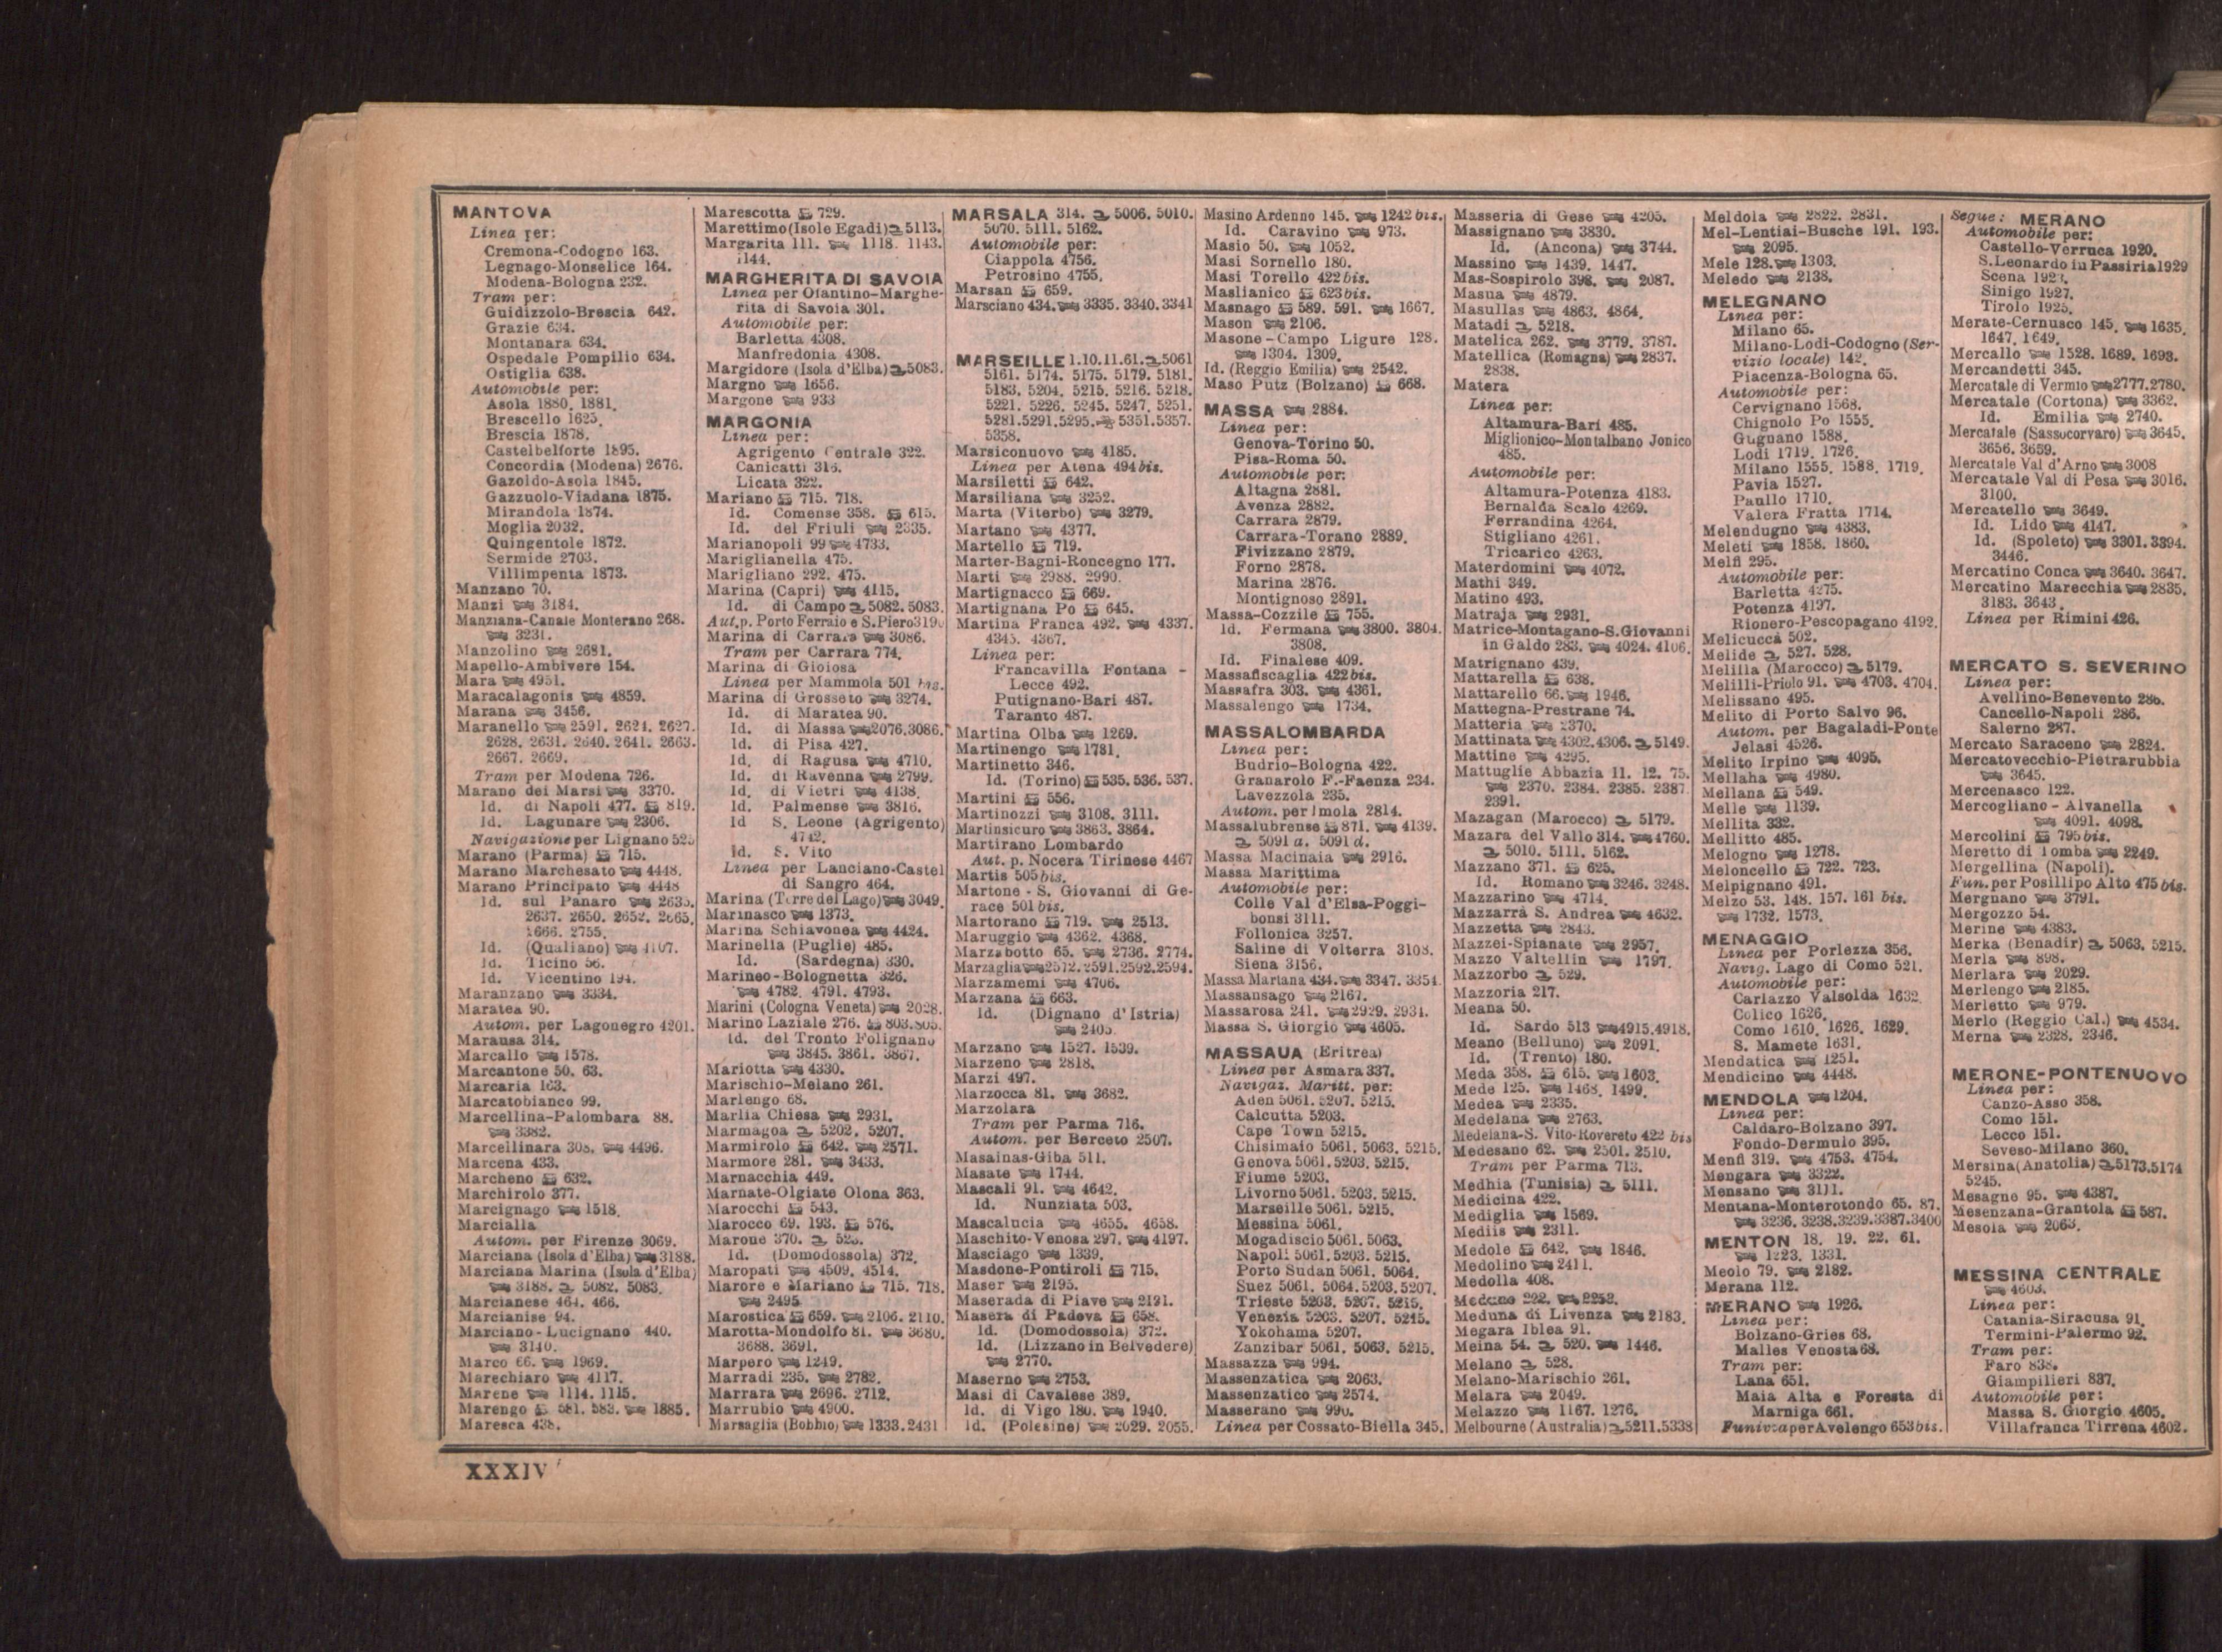 MANTOVA
Linea per:
Cremona-Codogno 163.
Legnago-Monselice 164.
Modena-Bologna 232.
Tram per:
Guidizzolo-Brescia 642.
Grazie 634.
Montanara 634.
Ospedale Pompilio 634.
Ostiglia 638.
Automobile per:
Asola 1880, 1881.
Brescello 1625.
Brescia 1878.
Castelbelforte 1895.
Concordia (Modena) 2676.
Gazoldo-Asola 1845.
Gazzuolo-Viadana 1875.
Mirandola 1874.
Moglia 2032.
Quingentole 1872.
Sermide 2703.
Villimpenta 1873.
Manzano 70.
Manzi 3184.
Manziana-Canale Monterano 268.
3231.
Manzolino 2681.
Mapello-Ambivere 154.
Mara 4951.
Maracalagonis 4859.
Marana 3456.
Maranello 2591. 2624. 2627.
2628. 2631. 2640. 2641. 2663.
2667. 2669.
Tram per Modena 726.
Marano dei Marsi 3370.
Id. di Napoli 477. 819.
Id. Lagunare 2306.
Navigazione per Lignano
Marano (Parma) 715.
Marano Marchesato 4448.
Marano Principato 4448
Id. sul Panaro 2635.
2637. 2650. 2652. 2665.
2666. 2755.
Id. (Qualiano) 4107.
Id. Ticino 56.
Id. Vicentino 194.
Maranzano 3334.
Maratea 90.
Autom. per Lagonegro 4201.
Marausa 314.
Marcallo 1578.
Marcantone 50. 63.
Marcaria 163.
Marcatobianco 99.
Marcellina-Palombara 88.
3382.
Marcellinara 308. 4496.
Marcena 433.
Marcheno 632.
Marchirolo 377.
Marcignago 1518.
Marcialla
Autom. per Firenze 3069.
Marciana (Isola d'Elba) 3188.
Marciana Marina (Isola d'Elba)
3188. 5082. 5083.
Marcianese 464. 466.
Marcianise 94.
Marciano-Lucignano 440.
3140.
Marco 66. 1969.
Marechiaro 4117.
Marene 1114. 1115.
Marengo 581. 583. 1885.
Maresca 438.
Marescotta 729.
Marettimo (Isole Egadi) 5113.
Margarita 111. 1118. 1143.
1144.
MARGHERITA DI SAVOIA
Linea per Ofantino-Marghe-
rita di Savoia 301.
Automobile per:
Barletta 4308.
Manfredonia 4308.
Margidore (Isola d'Elba) 5083.
Margno 1656.
Margone 933
MARGONIA
Linea per:
Agrigento Centrale 322.
Canicattì 316.
Licata 322.
Mariano 715. 718.
Id. Comense 358. 615.
Id. del Friuli 2335.
Marianopoli 99 4733.
Mariglianella 475.
Marigliano 292. 475.
Marina (Capri) 4115.
Id. di Campo 5082. 5083.
Aut. p. Porto Ferraio e S. Piero
Marina di Carrara 3086.
Tram per Carrara 774.
Marina di Gioiosa
Linea per Mammola 501 bis.
Marina di Grosseto 3274.
Id. di Maratea 90.
Id. di Massa 2076.3086.
Id. di Pisa 427.
Id. di Ragusa 4710.
Id. di Ravenna 2799.
Id. di Vietri 4138.
Id. Palmense 3816.
Id S. Leone (Agrigento)
4742.
Id. S. Vito
Linea per Lanciano-Castel
di Sangro 464.
Marina (Torre del Lago) 3049.
Marinasco 1373.
Marina Schiavonea 4424.
Marinella (Puglie) 485.
Id. (Sardegna) 330.
Marineo-Bolognetta 326.
4782. 4791. 4793.
Marini (Cologna Veneta) 2028.
Marino Laziale 276. 803.805.
Id. del Tronto Folignano
3845. 3861. 3867.
Mariotta 4330.
Marischio-Melano 261.
Marlengo 68.
Marlia Chiesa 2931.
Marmagoa 5202. 5207.
Marmirolo 642. 2571.
Marmore 281. 3433.
Marnacchia 449.
Marnate-Olgiate Olona 363.
Marocchi 543.
Marocco 69. 193. 576.
Marone 370.
Id. (Domodossola) 372.
Maropati 4509. 4514.
Marore e Mariano 715. 718.
2495.
Marostica 659. 2106. 2110.
Marotta-Mondolfo 81. 3680.
3688. 3691.
Marpero 1249.
Marradi 235. 2782.
Marrara 2696. 2712.
Marrubio 4900.
Marsaglia (Bobbio) 1333.2431
MARSALA 314. 5006. 5010.
5070. 5111. 5162.
Automobile per:
Ciappola 4756.
Petrosino 4755.
Marsan 659.
Marsciano 434. 3335. 3340. 3341
MARSEILLE 1.10.11.61. 5061
5161. 5174. 5175. 5179. 5181.
5183. 5204. 5215. 5216. 5218.
5221. 5226. 5245. 5247. 5251.
5281.5291.5295. 5351.5357.
5358.
Marsiconuovo 4185.
Linea per Atena 494 bis.
Marsiletti 642.
Marsiliana 3252.
Marta (Viterbo) 3279.
Martano 4377.
Martello 719.
Marter-Bagni-Roncegno 177.
Marti 2988. 2990.
Martignacco 669.
Martignana Po 645.
Martina Franca 492. 4337.
4345. 4367.
Linea per:
Francavilla Fontana -
Lecce 492.
Putignano-Bari 487.
Taranto 487.
Martina Olba 1269.
Martinengo 1781.
Martinetto 346.
Id. (Torino) 535. 536. 537.
Martini 556.
Martinozzi 3108. 3111.
Martinsicuro 3863. 3864.
Martirano Lombardo
Aut. p. Nocera Tirinese 4467
Martis 505 bis.
Martone - S. Giovanni di Ge-
race 501 bis.
Martorano 719. 2513.
Maruggio 4362. 4368.
Marzabotto 65. 2736. 2774.
Marzaglia 2572.2591.2592.2594.
Marzamemi 4706.
Marzana 663.
Id. (Dignano d'Istria)
2405.
Marzano 1527. 1539.
Marzeno 2818.
Marzi 497.
Marzocca 81. 3682.
Marzolara
Tram per Parma 716.
Autom. per Berceto 2507.
Masainas-Giba 511.
Masate 1744.
Mascali 91. 4642.
Id. Nunziata 503.
Mascalucia 4655. 4658.
Maschito-Venosa 297. 4197.
Masciago 1339.
Masdone-Pontiroli 715.
Maser 2195.
Maserada di Piave 2191.
Masera di Padova 658.
Id. (Domodossola) 372.
Id. (Lizzano in Belvedere)
2770.
Maserno 2753.
Masi di Cavalese 389.
Id. di Vigo 180. 1940.
Id. (Polesine) 2029. 2055.
Masino Ardenno 145. 1242 bis.
Id. Caravino 973.
Masio 50. 1052.
Masi Sornello 180.
Masi Torello 422 bis.
Maslianico 623 bis.
Masnago 589. 591. 1667.
Mason 2106.
Masone-Campo Ligure 128.
1304. 1309.
Id. (Reggio Emilia) 2542.
Maso Putz (Bolzano) 668.
MASSA 2884.
Linea per:
Genova-Torino 50.
Pisa-Roma 50.
Automobile per:
Altagna 2881.
Avenza 2882.
Carrara 2879.
Carrara-Torano 2889.
Fivizzano 2879.
Forno 2878.
Marina 2876.
Montignoso 2891.
Massa-Cozzile 755.
Id. Fermana 3800. 3804.
3808.
Id. Finalese 409.
Massafiscaglia 422 bis.
Massafra 303. 4361.
Massalengo 1734.
MASSALOMBARDA
Linea per:
Budrio-Bologna 422.
Granarolo F.-Faenza 234.
Lavezzola 235.
Autom. per Imola 2814.
Massalubrense 871. 4139.
5091 a. 5091 d.
Massa Macinaia 2916.
Massa Marittima
Automobile per:
Colle Val d'Elsa-Poggi-
bonsi 3111.
Follonica 3257.
Saline di Volterra 3108.
Siena 3156.
Massa Martana 434. 3347. 3354.
Massansago 2167.
Massarosa 241. 2929. 2934.
Massa S. Giorgio 4605.
MASSAUA (Eritrea)
Linea per Asmara 337.
Navigaz. Maritt. per:
Aden 5061. 5207. 5215.
Calcutta 5203.
Cape Town 5215.
Chisimaio 5061. 5063. 5215.
Genova 5061. 5203. 5215.
Fiume 5203.
Livorno 5061. 5203. 5215.
Marseille 5061. 5215.
Messina 5061.
Mogadiscio 5061. 5063.
Napoli 5061. 5203. 5215.
Porto Sudan 5061. 5064.
Suez 5061. 5064. 5203. 5207.
Trieste 5203. 5207. 5215.
Venezia 5203. 5207. 5215.
Yokohama 5207.
Zanzibar 5061. 5063. 5215.
Massazza 994.
Massenzatica 2063.
Massenzatico 2574.
Masserano 990.
Linea per Cossato-Biella 345.
Masseria di Gese 4205.
Massignano 3830.
Id. (Ancona) 3744.
Massino 1439. 1447.
Mas-Sospirolo 398. 2087.
Masua 4879.
Masullas 4863. 4864.
Matadi 5218.
Matelica 262. 3779. 3787.
Matellica (Romagna) 2837.
2838.
Matera
Linea per:
Altamura-Bari 485.
Miglionico-Montalbano Jonico
485.
Automobile per:
Altamura-Potenza 4183.
Bernalda Scalo 4269.
Ferrandina 4264.
Stigliano 4261.
Tricarico 4263.
Materdomini 4072.
Mathi 349.
Matino 493.
Matraja 2931.
Matrice-Montagano-S.Giovanni
in Galdo 283. 4024. 4106.
Matrignano 439.
Mattarella 638.
Mattarello 66. 1946.
Mattegna-Prestrane 74.
Matteria 2370.
Mattinata 4302.4306. 5149.
Mattine 4295.
Mattuglie Abbazia 11. 12. 75.
2370. 2384. 2385. 2387.
2391.
Mazagan (Marocco) 5179.
Mazara del Vallo 314. 4760.
5010. 5111. 5162.
Mazzano 371. 625.
Id. Romano 3246. 3248.
Mazzarino 4714.
Mazzarrà S. Andrea 4632.
Mazzetta 2843.
Mazzei-Spianate 2957.
Mazzo Valtellin 1797.
Mazzorbo 529.
Mazzoria 217.
Meana 50.
Id. Sardo 513 4915.4918.
Meano (Belluno) 2091.
Id. (Trento) 180.
Meda 358. 615. 1603.
Mede 125. 1468. 1499.
Medea 2335.
Medelana 2763.
Medelana-S. Vito-Rovereto 422 bis
Medesano 62. 2501. 2510.
Tram per Parma 713.
Medhia (Tunisia) 5111.
Medicina 422.
Mediglia 1569.
Mediis 2311.
Medole 642. 1846.
Medolino 2411.
Medolla 408.
Meduna di Livenza 2183.
Megara Iblea 91.
Meina 54. 520. 1446.
Melano 528.
Melano-Marischio 261.
Melara 2049.
Melazzo 1167. 1276.
Melbourne (Australia) 5211.5338
Meldola 2822. 2831.
Mel-Lentiai-Busche 191. 193.
2095.
Mele 128. 1303.
Meledo 2138.
MELEGNANO
Linea per:
Milano 65.
Milano-Lodi-Codogno (Ser-
vizio locale) 142.
Piacenza-Bologna 65.
Automobile per:
Cervignano 1568.
Chignolo Po 1555.
Gugnano 1588.
Lodi 1719. 1726.
Milano 1555. 1588. 1719.
Pavia 1527.
Paullo 1710.
Valera Fratta 1714.
Melendugno 4383.
Meleti 1858. 1860.
Melfi 295.
Automobile per:
Barletta 4275.
Potenza 4197.
Rionero-Pescopagano 4192.
Melicuccà 502.
Melide 527. 528.
Melilla (Marocco) 5179.
Melilli-Priolo 91. 4703. 4704.
Melissano 495.
Melito di Porto Salvo 96.
Autom. per Bagaladi-Ponte
Jelasi 4526.
Melito Irpino 4095.
Mellaha 4980.
Mellana 549.
Melle 1139.
Mellita 332.
Mellitto 485.
Melogno 1278.
Meloncello 722. 723.
Melpignano 491.
Melzo 53. 148. 157. 161 bis.
1732. 1573.
MENAGGIO
Linea per Porlezza 356.
Navig. Lago di Como 521.
Automobile per:
Carlazzo Valsolda 1632.
Colico 1626.
Como 1610. 1626. 1629.
S. Mamete 1631.
Mendatica 1251.
Mendicino 4448.
MENDOLA 1204.
Linea per:
Caldaro-Bolzano 397.
Fondo-Dermulo 395.
Menfi 319. 4753. 4754.
Mengara 3322.
Mensano 3111.
Mentana-Monterotondo 65. 87.
3236. 3238.3239.3387.3400
MENTON 18. 19. 22. 61.
1223. 1331.
Meolo 79. 2182.
Merana 112.
MERANO 1926.
Linea per:
Bolzano-Gries 68.
Malles Venosta 68.
Tram per:
Lana 651.
Maia Alta e Foresta di
Marniga 661.
Funivia per Avelengo 653 bis.
Segue: MERANO
Automobile per:
Castello-Verruca 1920.
S. Leonardo in Passiria 1929
Scena
Sinigo 1927.
Tirolo 1925.
Merate-Cernusco 145. 1635.
1647. 1649.
Mercallo 1528. 1689. 1693.
Mercandetti 345.
Mercatale di Vernio 2777.2780.
Mercatale (Cortona) 3362.
Id. Emilia 2740.
Mercatale (Sassocorvaro) 3645.
3656. 3659.
Mercatale Val d'Arno 3008
Mercatale Val di Pesa 3016.
3100.
Mercatello 3649.
Id. Lido 4147.
Id. (Spoleto) 3301. 3394.
3446.
Mercatino Conca 3640. 3647.
Mercatino Marecchia 2835.
3183. 3643.
Linea per Rimini 426.
MERCATO S. SEVERINO
Linea per:
Avellino-Benevento 286.
Cancello-Napoli 286.
Salerno 287.
Mercato Saraceno 2824.
Mercatovecchio-Pietrarubbia
3645.
Mercenasco 122.
Mercogliano-Alvanella
4091. 4098.
Mercolini 795 bis.
Meretto di Tomba 2249.
Mergellina (Napoli).
Fun. per Posillipo Alto 475 bis.
Mergnano 3791.
Mergozzo 54.
Merine 4383.
Merka (Benadir) 5063. 5215.
Merla 898.
Merlara 2029.
Merlengo 2185.
Merletto 979.
Merlo (Reggio Cal.) 4534.
Merna 2328. 2346.
MERONE-PONTENUOVO
Linea per:
Canzo-Asso 358.
Como 151.
Lecco 151.
Seveso-Milano 360.
Mersina (Anatolia) 5173.5174
5245.
Mesagne 95. 4387.
Mesenzana-Grantola 587.
Mesola 2063.
MESSINA CENTRALE
4603.
Linea per:
Catania-Siracusa 91.
Termini-Palermo 92.
Tram per:
Faro 838.
Giampilieri 837.
Automobile per:
Massa S. Giorgio 4605.
Villafranca Tirrena 4602.
XXXIV